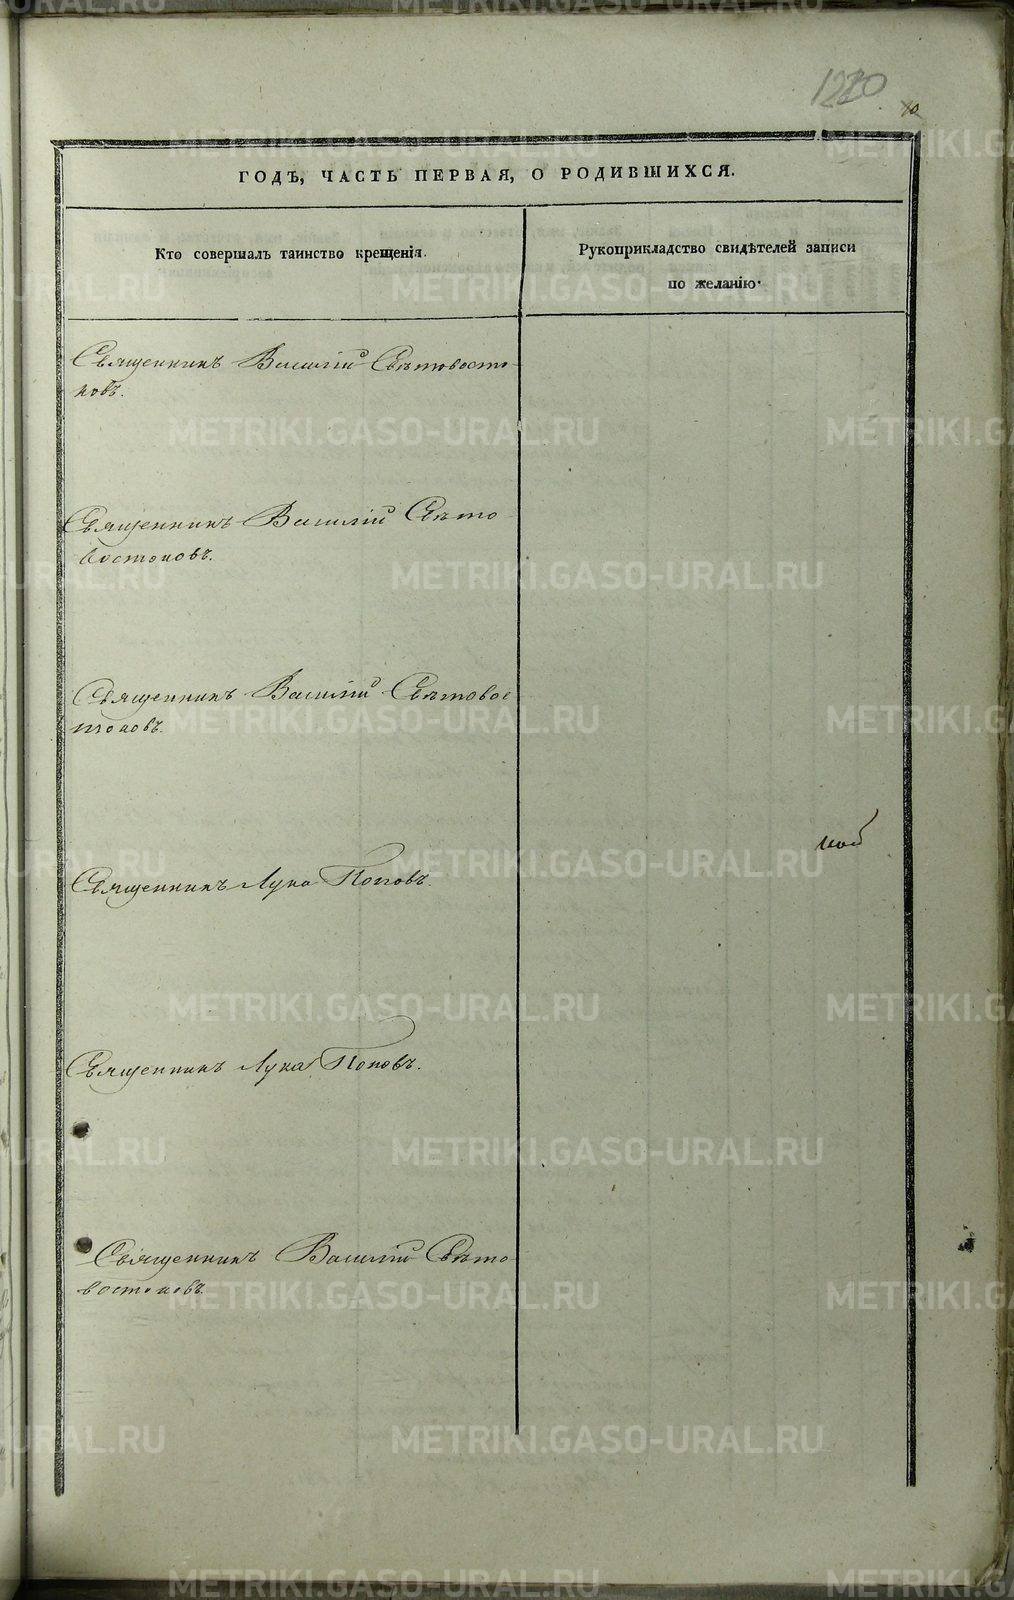 1220
10
ГОДЪ, ЧАСТЬ ПЕРВАЯ, О РОДИВШИХСЯ.
Кто совершалъ таинство крещенія.
Рукоприкладство свидѣтелей записи
по желанію.
Священникъ Василій Свѣтовосто-
ковъ.
Священникъ Василій Свѣто
востоковъ.
Священникъ Василій Свѣтовос
токовъ.
Священникъ Лука Поповъ.
Священникъ Лука Поповъ.
Священникъ Василій Свѣто
востоковъ.
METRIKI.GASO-URAL.RU